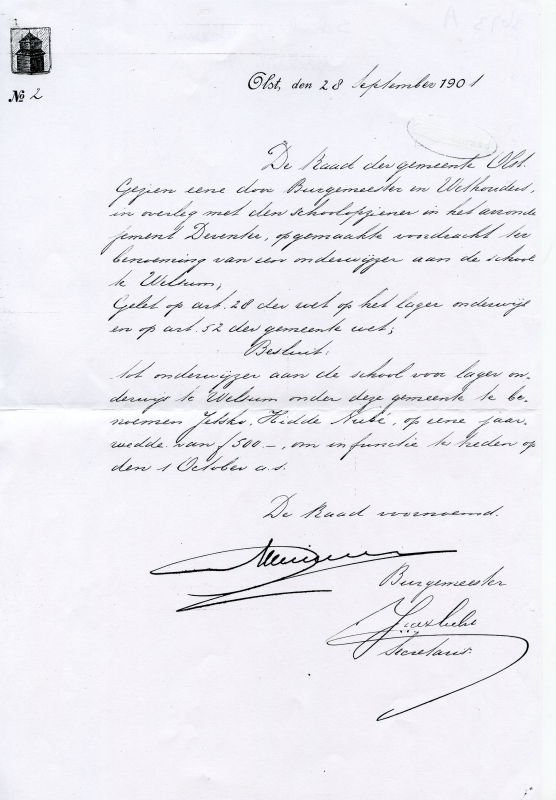 Olst, den 28 September 1901
№ 2
De Raad der gemeente Olst.
Gezien eene door Burgemeester en Wethouders,
in overleg met den schoolopziener in het arron-
dissement Deventer, opgemaakte voordracht ter
benoeming van een onderwijzer aan de school
te Welsum;
Gelet op art. 28 der wet op het lager onderwijs
en op art. 52 der gemeente wet;
Besluit:
tot onderwijzer aan de school voor lager on-
derwijs te Welsum onder deze gemeente te be-
noemen Jetske Hidde Nubé, op eene jaar-
wedde van f 500.-, om in functie te treden op
den 1 October a.s.
De Raad voornoemd.
Burgemeester
Secretaris.